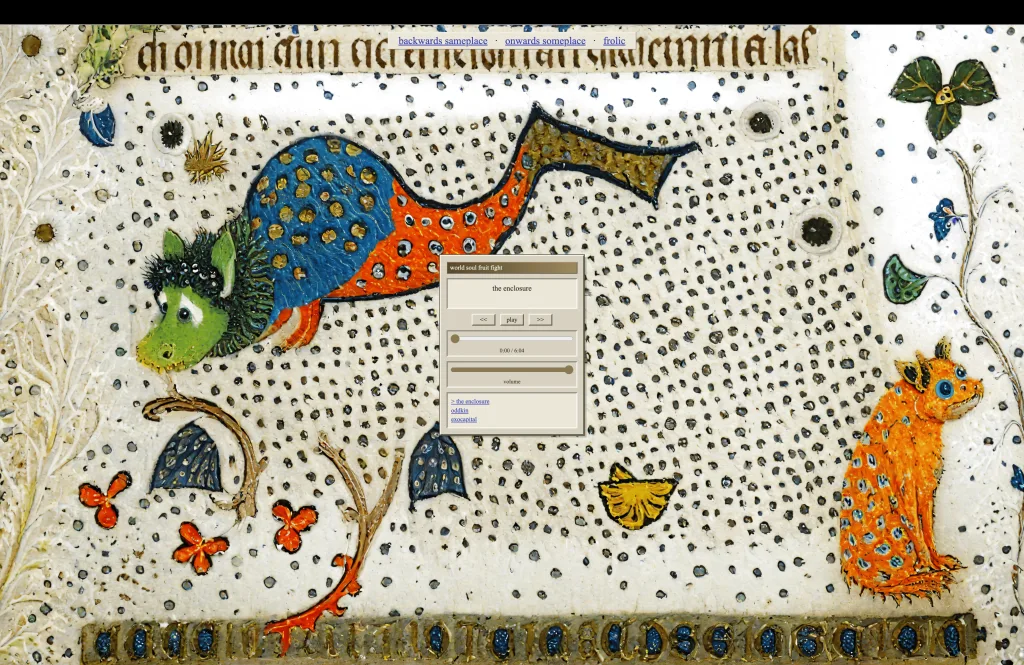 backwards sameplace · onwards someplace · frolic
world soul fruit fight
the enclosure
<< play >>
0:00 / 6:04
volume
> the enclosure
oddkin
exocapital